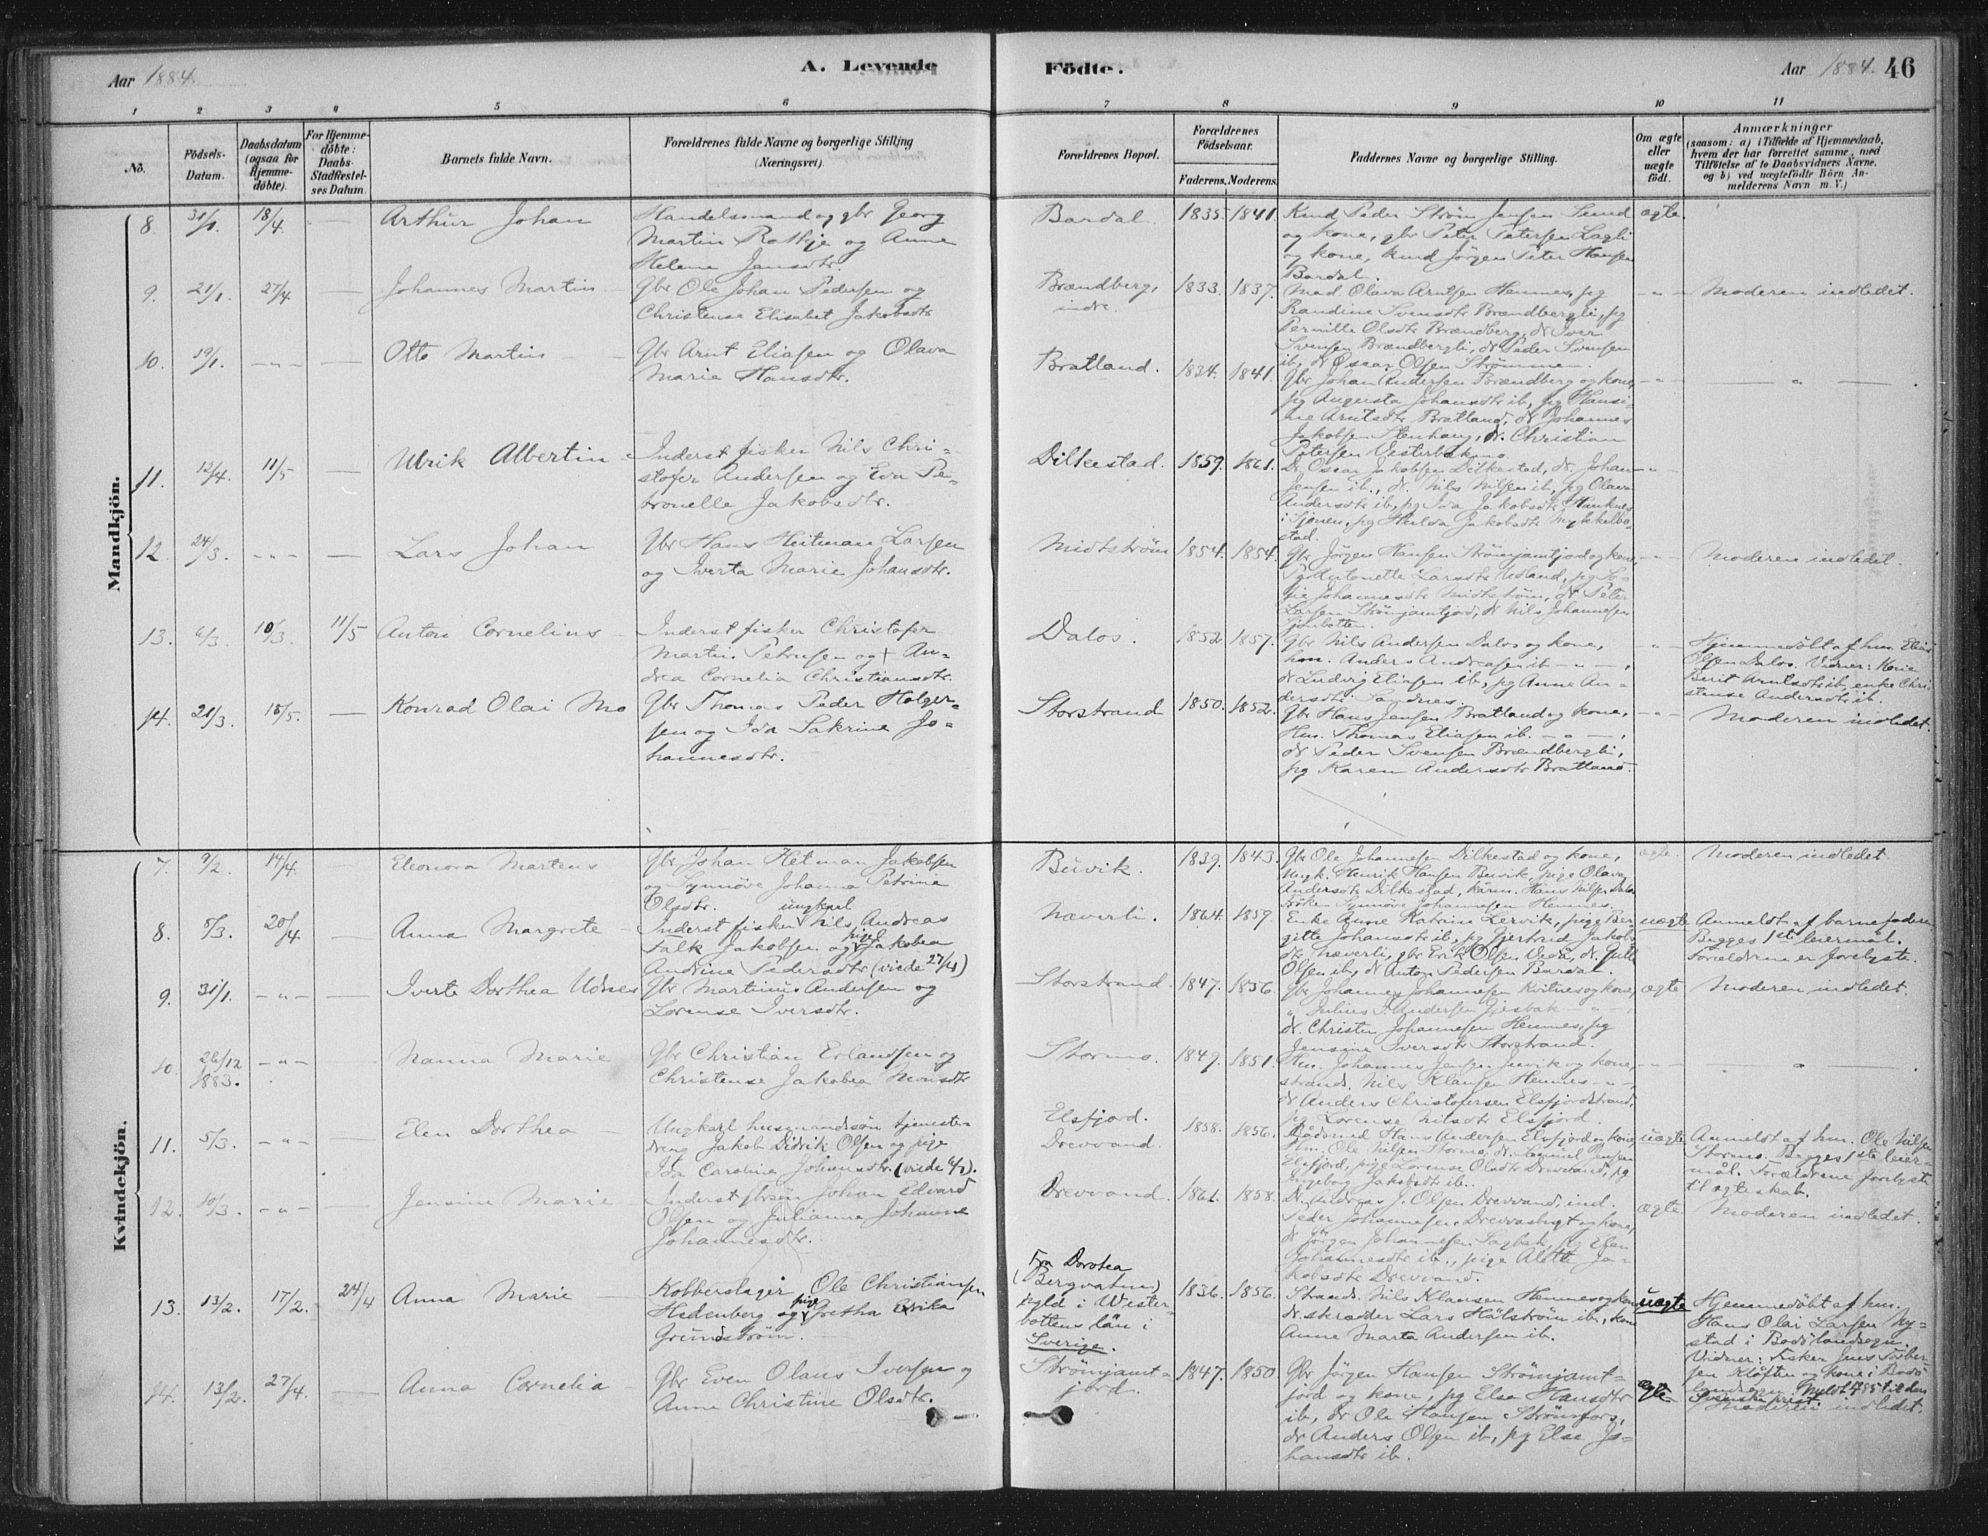 Aar 1884.
A. Levende
Födte.
Aar 1884. 46
1 2 3 4 5 6 7 8 9 10 11
No.
Födsels-Datum.
Daabsdatum (ogsaa for Hjemme-döbte).
For Hjemme-döbte: Daabs-Stadfæstel-ses Datum.
Barnets fulde Navn.
Forældrenes fulde Navne og borgerlige Stilling (Næringsvei).
Forældrenes Bopæl.
Forældrenes Födselsaar.
Faderens. Moderens.
Faddernes Navne og borgerlige Stilling.
Om ægte eller uægte født.
Anmærkninger
(saasom: a) i Tilfælde af Hjemmedaab,
hvem der har forrettet samme, med
Tilföielse af to Daabsvidners Navne,
og b) ved uægtefödte Börn An-
melderens Navn m. V.)
Mandkjön.
8. 31/1. 18/4. — Arthur Johan
Handelsmand og gbr Georg
Martin Rathje og Anne
Helene Jansdtr.
Bardal 1835. 1841.
Knud Peder Strøm Jensen Lund
og kone, gbr Peter Petersen Lagli
og kone, Knud Jörgen Peter Hansen
Bardal.
ægte.
9. 21/1. 27/4. — Johannes Martin
Gbr Ole Johan Pedersen og
Christense Elisabet Jakobsdtr
Brændberg,
indre.
1833. 1837.
Mad. Olava Arntsen Hennes, pg
Randine Svensdtr Brændbergli, pg
Pernille Olsdtr Brændberg, dr Iver
Svensen Brændbergli, dr Peder Svensen
ib, dr Oscar Olsen Strømmen.
— " — Moderen indledet.
10. 19/1. — " — — Otto Martin
Gbr Arnt Eliasen og Olava
Marie Hansdtr.
Bratland. 1834. 1841.
Gbr Johan Andersen Brændberg og kone,
pg Augusta Johansdtr ib, pg Hansi-
ne Arntsdtr Bratland, dr Johannes
Jakobsen Stenhaug, dr Christian
Petersen Vesterbakmo.
— " — — " —
11. 12/4. 11/5 — Ulrik Albertin
Inderst fisker Nils Chri-
stofer Andersen og Eva Pe-
tronelle Jakobsdtr.
Dilkestad. 1859. 1861.
Dr Oscar Jakobsen Dilkestad, dr. Johan
Jensen ib., dr. Nils Nilsen ib, pg Olava
Andersdtr ib, pg Ida Jakobsdtr Hanknes
i Sjonen, pg Hulda Jakobsdtr Mykkelbo-
stad.
— " —
12. 24/3. — " — — Lars Johan
Gbr Hans Heitman Larsen
og Iverta Marie Johansdtr.
Midtstrøm 1854. 1854.
Gbr Jörgen Hansen Strömjamtjord og kone,
Pg Antonette Larsdtr Utland, pg So-
fie Johannesdtr Midtstrøm, dr Peter
Larsen Strömjamtjord, dr Nils Johannesen
— " — Moderen indledet.
13. 6/3. 10/3. 11/5 Anton Cornelius
Inderst fisker Christofer
Martin Petersen og An-
drea Cornelia Christiansdtr.
Dalos. 1852. 1857.
Gbr Nils Andersen Dalos og kone,
hm. Anders Andreasen ib — " — ,
dr Ludvig Eliasen ib, pg Anne An-
dersdtr Sandnes.
— " — Hjemmedöbt af hm. Elias
Olsen Dalos. Vidner: Kone
Berit Arntsdtr ib, enke Chri-
stense Andersdtr ib.
14. 21/3. 18/5. — Konrad Olai Mo
Gbr Thomas Peder Holger-
sen og Ida Sakrine Jo-
hannesdtr.
Storstrand 1850. 1852.
Gbr Hans Jensen Bratland og kone,
Hm. Thomas Eliasen ib. — " — ,
dr Peder Svensen Brændbergli,
pg Karen Andersdtr Bratland.
— " — Moderen indledet.
Kvindekjön.
7. 9/2. 14/4. — Eleonora Martens
Gbr Johan Hetman Jakobsen
og Synnöve Johanna Petrina
Olsdtr.
Buvik. 1839. 1843.
Gbr Ole Johannesen Dilkestad og kone,
Ungk. Henrik Hansen Buvik, pige Olava
Andersdtr Dilkestad, kårm. Hans Nilsen Dalos
Enken Synnöve Johannesen Hennes.
ægte. Moderen indledet.
8. 8/3. 20/4 — Anna Margrete
ungkarl
Inderst fisker Nils Andreas
Falk Jakobsen og pige Jakobea
Andrine Pedersdtr (viede 27/4)
Næverli. 1864. 1859.
Enke Anne Katrine Lervik, pige Ber-
gitte Johansdtr ib, pg Gjertrud Jakobs-
dtr Næverli, gbr Erik Olsen Veda, dr. Jull
Olsen ib, dr Anton Pedersen Bardal.
uægte Anmeldt af barnefaderen
Begges 1ste leiermål.
Forældrene er forelyste.
9. 31/1. — " — — Iverte Dorthea Udnæs
Gbr Martinus Andersen og
Lorense Iversdtr.
Storstrand. 1847. 1856.
Gbr Johannes Johannesen Kvitnes og kone,
" Julius Andersen Gjesbak — " — ,
dr. Christen Johannesen Hennes, pg
Jensine Iversdtr Storstrand.
ægte Moderen indledet.
10. 26/12 1883. — " — — Nanna Marie
Gbr Christian Erlandsen og
Christense Jakobea Monsdtr
Stormo. 1849. 1851.
Hm. Johannes Jensen Juvik og kone,
strands. Nils Klausen Hennes — " — ,
dr Anders Christofersen Elsfjordstrand,
pg Lorense Nilsdtr Elsfjord.
— " — — " —
11. 5/3. — " — — Elen Dorthea
Ungkarl husmandssön tjeneste-
dreng Jakob Didrik Olsen og pige
Ida Caroline Johansdtr. (viede 6/7).
Elsfjord.
Drevvand.
1858. 1856.
Hans Andersen Elsfjord og kone,
Hm. Ole Nilsen Stormo, dr. Samuel Jensen
Elsfjord, pige Lorense Olsdtr Drevvand, pg
Ingebog Jakobsdtr ib.
uægte Anmeldt af hm. Ole Nilsen
Stormo. Begges 1ste leier-
mål. Forældrene forelyste
til ægteskab.
12. 10/3. — " — — Jensine Marie
Inderst gbrsön Johan Edvard
Olsen og Julianna Johanne
Johannesdtr.
Drevvand. 1861. 1858.
Dr. Andreas J. Olsen Drevvand, ind.
Peder Johannesen Drevvashyt og kone,
dr Jörgen Johannesen Sagbak, pg Elen
Johannesdtr ib., pige Alette Ja-
kobsdtr Drevvand.
ægte. Moderen indledet.
13. 13/2. 17/2. 24/4 Anna Marie
Kobberslager Ole Christiansen
Hedenberg og pige Gretha Erika
Grundström.
Fra Dorotea
(Bergvatnn)
sgld i Wester-
bottens län i
Sverige.
1836. 1856.
Strands. Nils Klausen Hennes og kone
dr. skræder Lars Hälström ib., kone
Anne Marta Andersen ib.
uægte Hjemmedöbt af hm.
Hans Olai Larsen Ny-
stad i Bodö landsogn.
Vidner: Fisker Jens Tober-
sen Klöften og kone i Bodö
landsogn. Meldt 785 til den
svenske prest.
14. 13/2. 27/4. — Anna Cornelia
Gbr Even Olaus Iversen og
Anne Christine Olsdtr.
Strömjamt-
jord.
1847. 1850.
Gbr Jörgen Hansen Strömjamt-
jord og kone, pg Else Hansdtr
ib, dr Ole Hansen Strömfors,
dr Anders Olsen ib, pg Else Jo-
hansdtr ib.
ægte Moderen indledet.